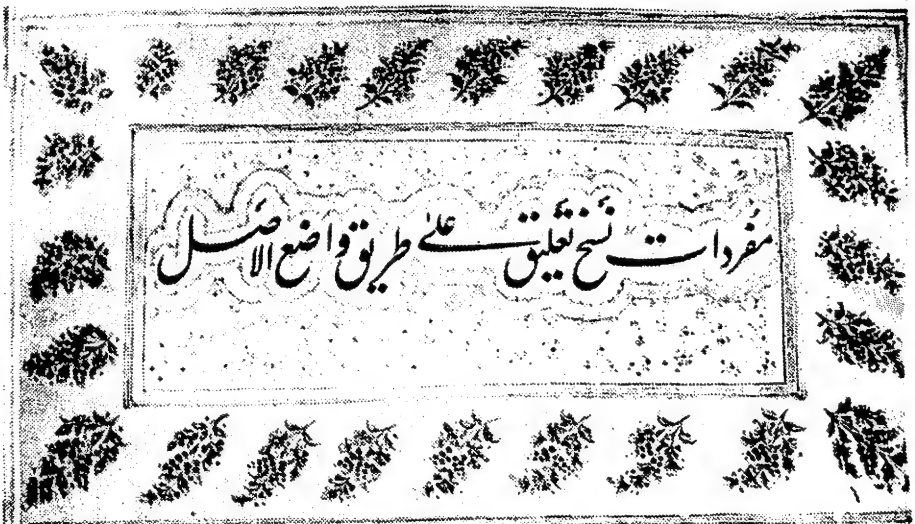 مفردات نسخ تعلیق علیٰ طریق واضع الاصل